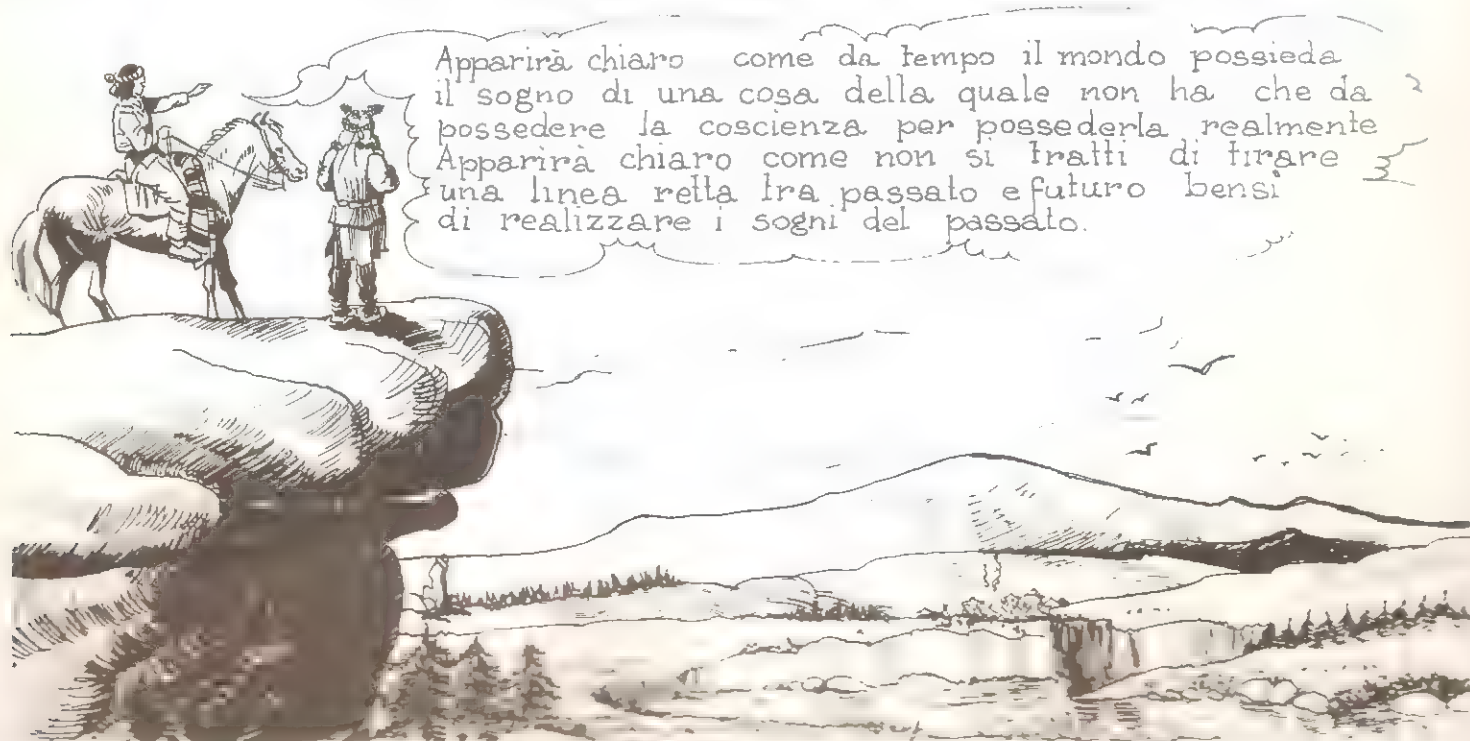 Apparirà chiaro come da tempo il mondo possieda
il sogno di una cosa della quale non ha che da
possedere la coscienza per possederla realmente
Apparirà chiaro come non si tratti di tirare
una linea retta tra passato e futuro bensì
di realizzare i sogni del passato.